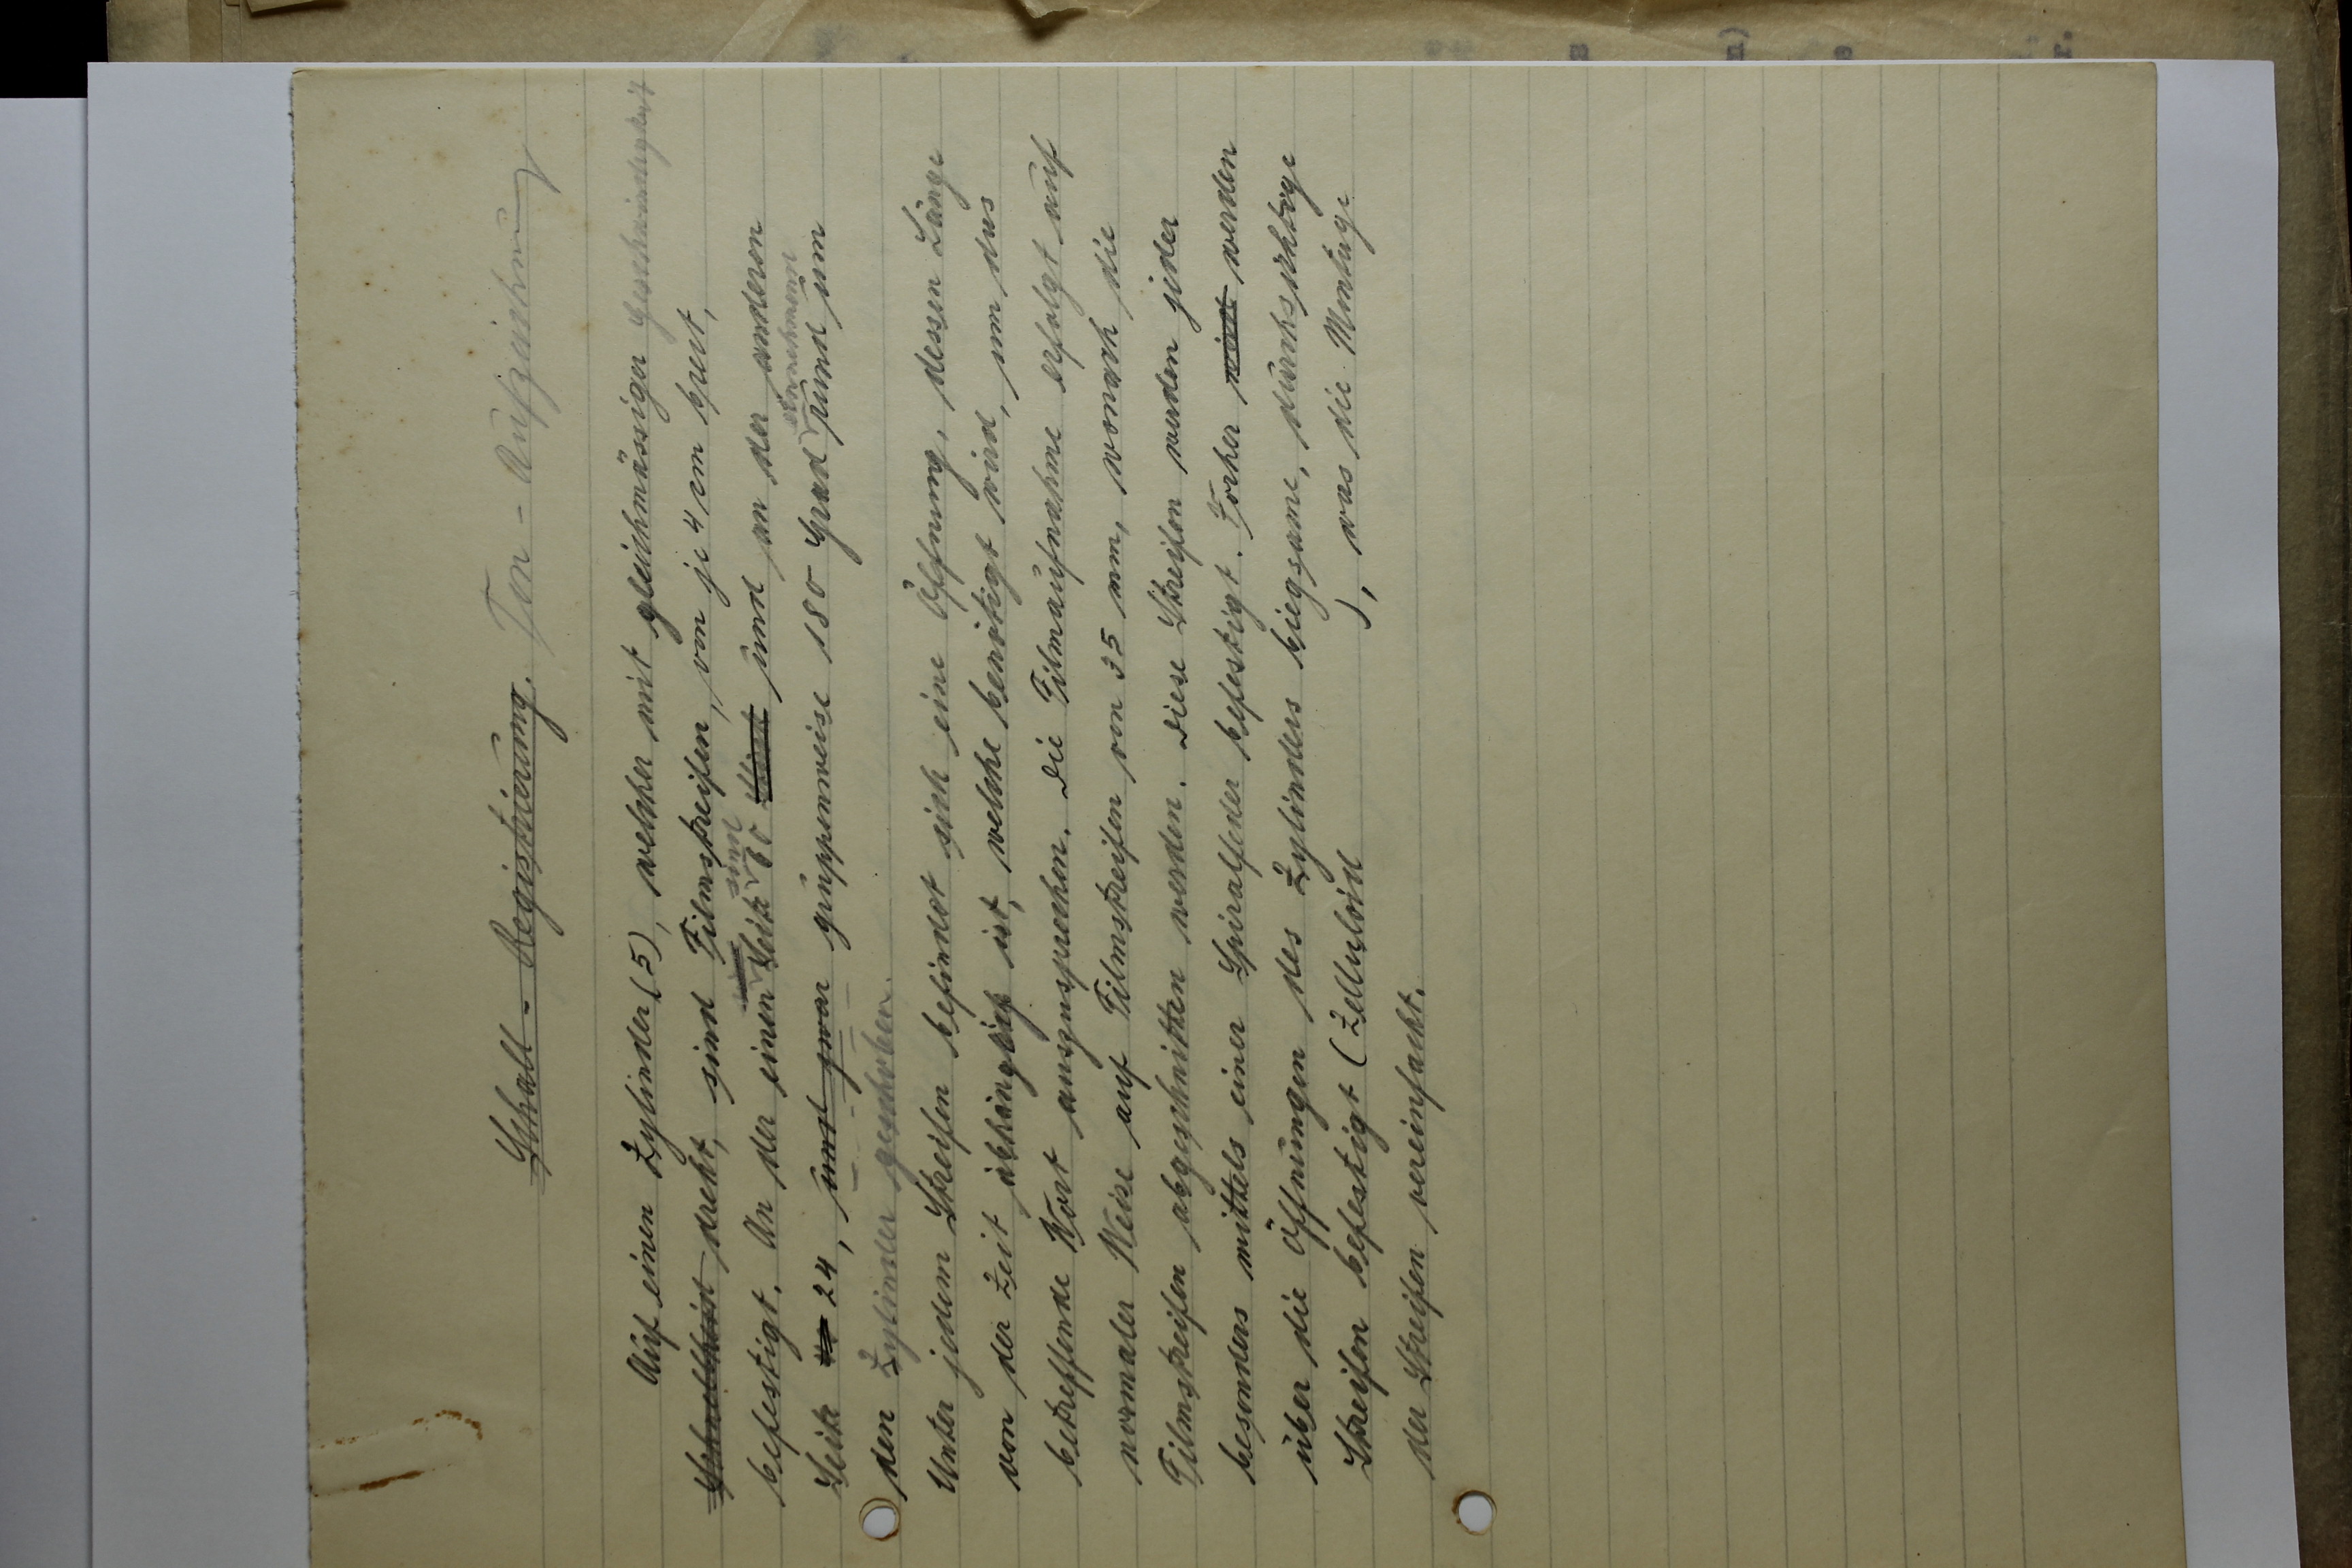 Schall-Registrierung. Ton-Aufzeichnung
Auf einen Zylinder (5), welcher mit gleichmässiger Geschwindigkeit
dreht, sind Filmstreifen, von je 4 cm breit,
befestigt. An der einen Seite sind 60 und an der anderen
Seite 24, und zwar gruppenweise 180 Grad rund um
den Zylinder geschoben.
Unter jedem Streifen befindet sich eine Öffnung, dessen Länge
von der Zeit abhänglich ist, welche benötigt wird, um das
betreffende Wort auszusprechen. Die Filmaufnahme erfolgt auf
normaler Weise auf Filmstreifen von 35 mm, wonach die
Filmstreifen abgeschnitten werden. Diese Streifen werden jeder
besonders mittels einer Spiralfeder befestigt. Vorher werden
über die Öffnungen des Zylinders biegsame, durchsichtige
Streifen befestigt (Zelluloid ), was die Montage
der Streifen vereinfacht.